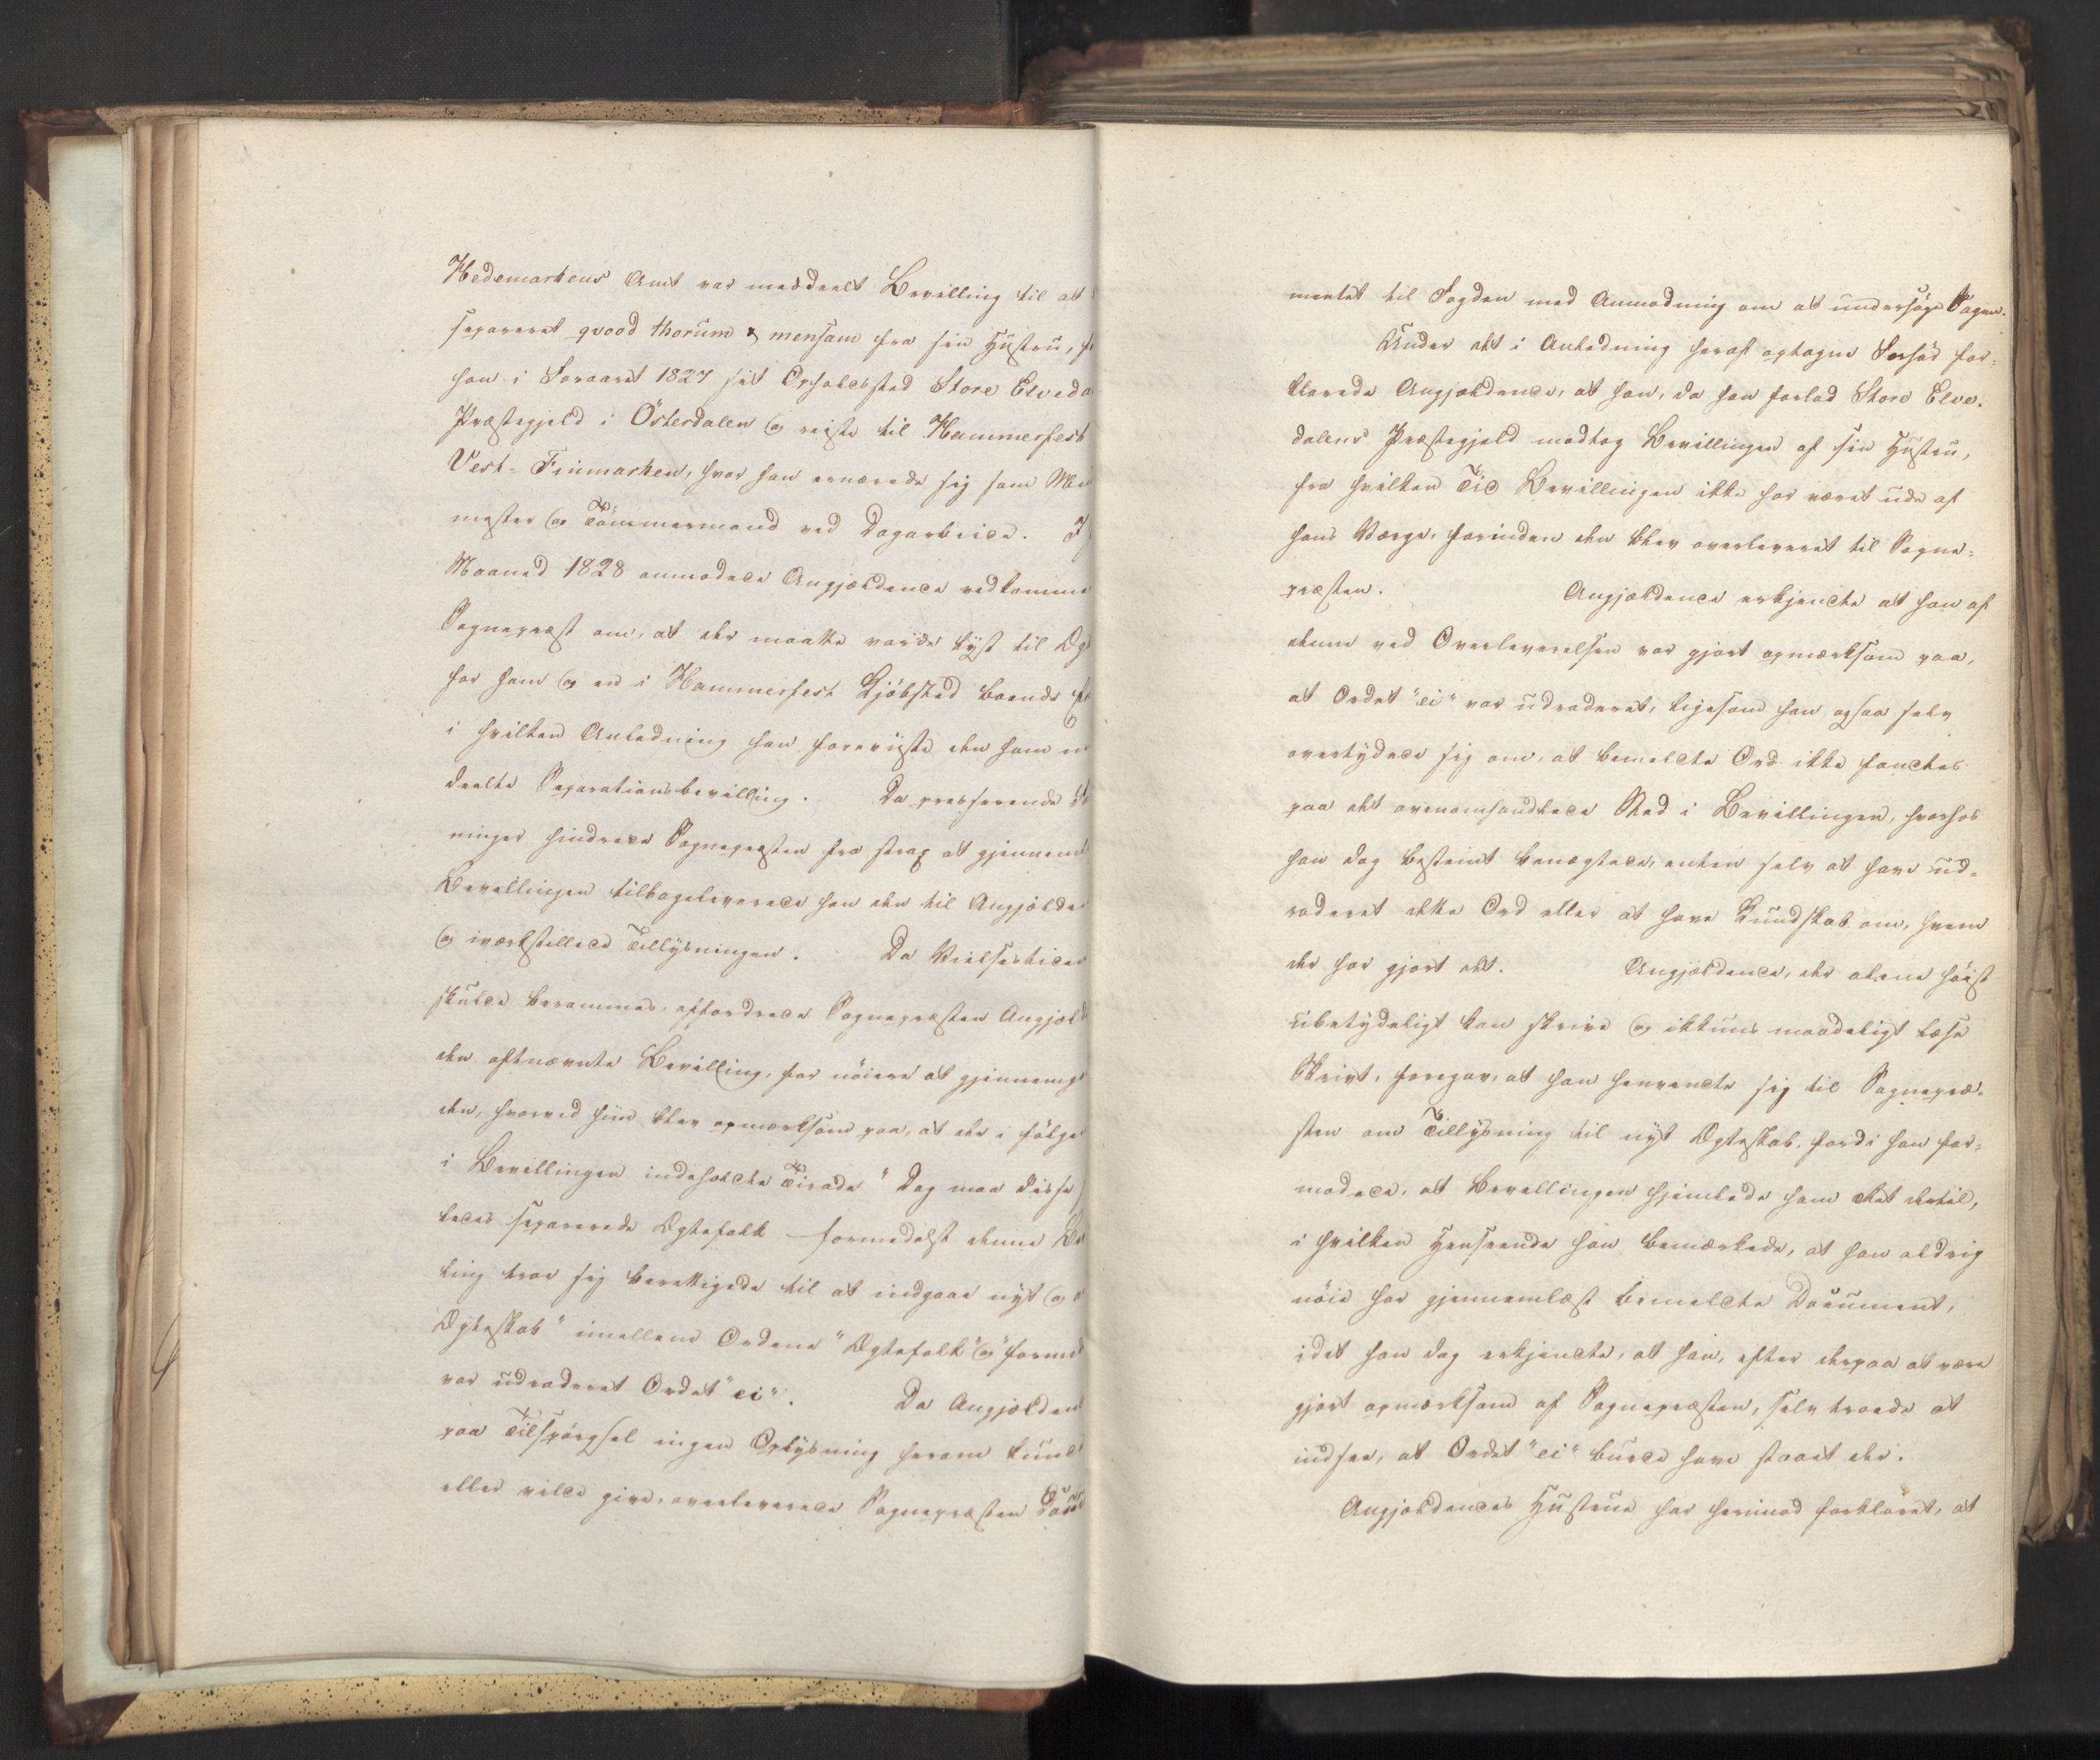 Hedemarkens Amt var meddeelt Bevilling til at
separeret qvood thorum & mensam fra sin Hustru,
han i Foraaret 1827 sit Opholdssted Store Elveda
Præstegjeld i Österdalen og reiste til Hammerfest
Vest-Finmarken, hvor han ernærede sig som
mester og Tömmermand ved Dagarbeide. I
Maaned 1828 anmodede Angjældende vedkomme
Sognepræst om, at der maatte vorde lyst til Ægt
for ham og en i Hammerfest Kjöbsted boende
i hvilken Anledning han foreviiste den ham m
deelte Separationsbevilling. Da presserende
ninger hindrede Sognepræsten fra strax at gjennem
Bevillingen tilbageleverede han den til Angjælde
og iværkstillede Tillysningen. Da Vielsestiden
skulde berammes, affordrede Sognepræsten Angjæld
den oftnævnte Bevilling, for nöiere at gjennemg
den, hvorved hiin blev opmærksom paa, at der i fölge
i Bevillingen indeholdte Tirade "Dog maa disse
ledes separerede Ægtefolk formedelst denne Be
ling troe sig berettigede til at indgaae nyt og
Ægteskab" imellem Ordene "Ægtefolk" og "formed
var udraderet Ordet "ei". Da Angjælden
paa Tilspörgsel ingen Oplysning herom kund
eller vilde give, overleverede Sognepræsten Docu
mentet til Fogden med Anmodning om at undersöge Sagen.
Under det i Anledning heraf optagne Forhör for-
klarede Angjældende, at han, da han forlod Store Elve-
dalens Præstegjeld modtog Bevillingen af sin Hustru,
fra hvilken Tid Bevillingen ikke har været ude af
hans Værge, forinden den blev overleveret til Sogne-
præsten. Angjældende erkjendte at han af
denne ved Overleverelsen var gjort opmærksom paa,
at Ordet "ei" var udraderet, ligesom han ogsaa selv
overtydede sig om, at bemeldte Ord ikke fandtes
paa det ovenomhandlede Sted i Bevillingen, hvorhos
han dog bestemt benægtede, enten selv at have ud-
raderet dette Ord eller at have Kundskab om, hvem
der har gjort det. Angjældende, der alene höist
ubetydeligt kan skrive og ikkuns maadeligt læse
Skrivt, foregav, at han henvendte sig til Sognepræ-
sten om Tillysning til nyt Ægteskab, fordi han for-
modede, at Bevillingen hjemlede ham Ret dertil,
i hvilken Henseende han bemærkede, at han aldrig
nöie har gjennemlæst bemeldte Document,
idet han dog erkjendte, at han, efter derpaa at være
gjort opmærksom af Sognepræsten, selv troede at
indsee, at Ordet "ei" burde have staaet der.
Angjældendes Hustrue har herimod forklaret, at